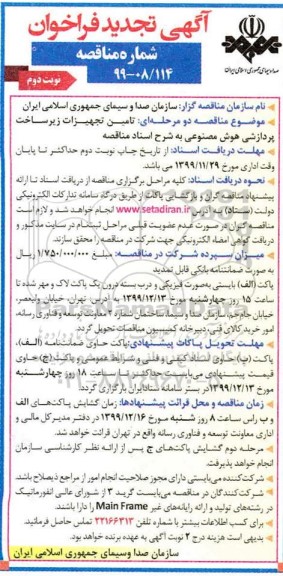 آگهی تجدید فراخوان
شماره مناقصه
۹۹-۰۸/۱۱۴
نوبت دوم
صدا و سیمای جمهوری اسلامی ایران
نام سازمان مناقصه گزار: سازمان صدا و سیمای جمهوری اسلامی ایران
موضوع مناقصه دو مرحله‌ای: تامین تجهیزات زیرساخت
پردازشی هوش مصنوعی به شرح اسناد مناقصه
مهلت دریافت اسناد: از تاریخ چاپ نوبت دوم حداکثر تا پایان
وقت اداری مورخ ۱۳۹۹/۱۱/۲۹ می‌باشد.
نحوه دریافت اسناد: کلیه مراحل برگزاری مناقصه از دریافت اسناد تا ارائه
پیشنهاد مناقصه‌گران و بازگشایی پاکت از طریق درگاه سامانه تدارکات الکترونیکی
دولت (ستاد) به آدرس www.setadiran.ir انجام خواهد شد و لازم است
مناقصه گران در صورت عدم عضویت قبلی مراحل ثبت‌نام در سایت مذکور و
دریافت گواهی امضاء الکترونیکی جهت شرکت در مناقصه را محقق سازند.
میزان سپرده شرکت در مناقصه: مبلغ ۱/۷۵۰/۰۰۰/۰۰۰ ریال
به صورت ضمانتنامه بانکی قابل تمدید
پاکت (الف) بایستی به‌صورت فیزیکی و درب بسته درون یک پاکت لاک و مهر شده تا
ساعت ۱۵ روز چهارشنبه مورخ ۱۳۹۹/۱۲/۱۳ به آدرس تهران، خیابان ولیعصر،
خیابان جام‌جم، سازمان صدا و سیما، ساختمان شماره ۲ معاونت توسعه و فناوری رسانه،
امور خرید کالای فنی، دبیرخانه کمیسیون مناقصات تحویل گردد.
مهلت تحویل پاکات پیشنهادی: پاکت حاوی ضمانتنامه (الف)،
پاکت (ب) حاوی اسناد کیفی و فنی و شرایط عمومی و پاکت (ج) حاوی
قیمت پیشنهادی می‌بایست حداکثر تا ساعت ۱۸ روز چهارشنبه
مورخ ۱۳۹۹/۱۲/۱۳ بر بستر سامانه ستاد ایران بارگزاری گردد.
زمان مناقصه و محل قرائت پیشنهادها: زمان گشایش پاکت‌های الف
و ب راس ساعت ۸ روز شنبه مورخ ۱۳۹۹/۱۲/۱۶ در دفتر مدیرکل مالی و
اداری معاونت توسعه و فناوری رسانه واقع در تهران قرائت خواهد شد.
مرحله دوم گشایش پاکت‌های ج پس از ارائه نظر کارشناسی سازمان
انجام خواهد پذیرفت.
شرکت‌کننده می‌بایستی دارای مجوز صلاحیت انجام امور از مراجع ذیصلاح باشد.
شرکت‌کنندگان در مناقصه می‌بایست گرید ۳ از شورای عالی انفورماتیک
در رشته‌های تولید و ارائه رایانه‌های غیر Main Frame را دارا باشند.
برای کسب اطلاعات بیشتر با شماره تلفن ۲۲۱۶۶۳۱۳ تماس حاصل فرمائید.
بدیهی است هزینه درج ۲ نوبت آگهی به عهده برنده خواهد بود.
سازمان صدا و سیمای جمهوری اسلامی ایران